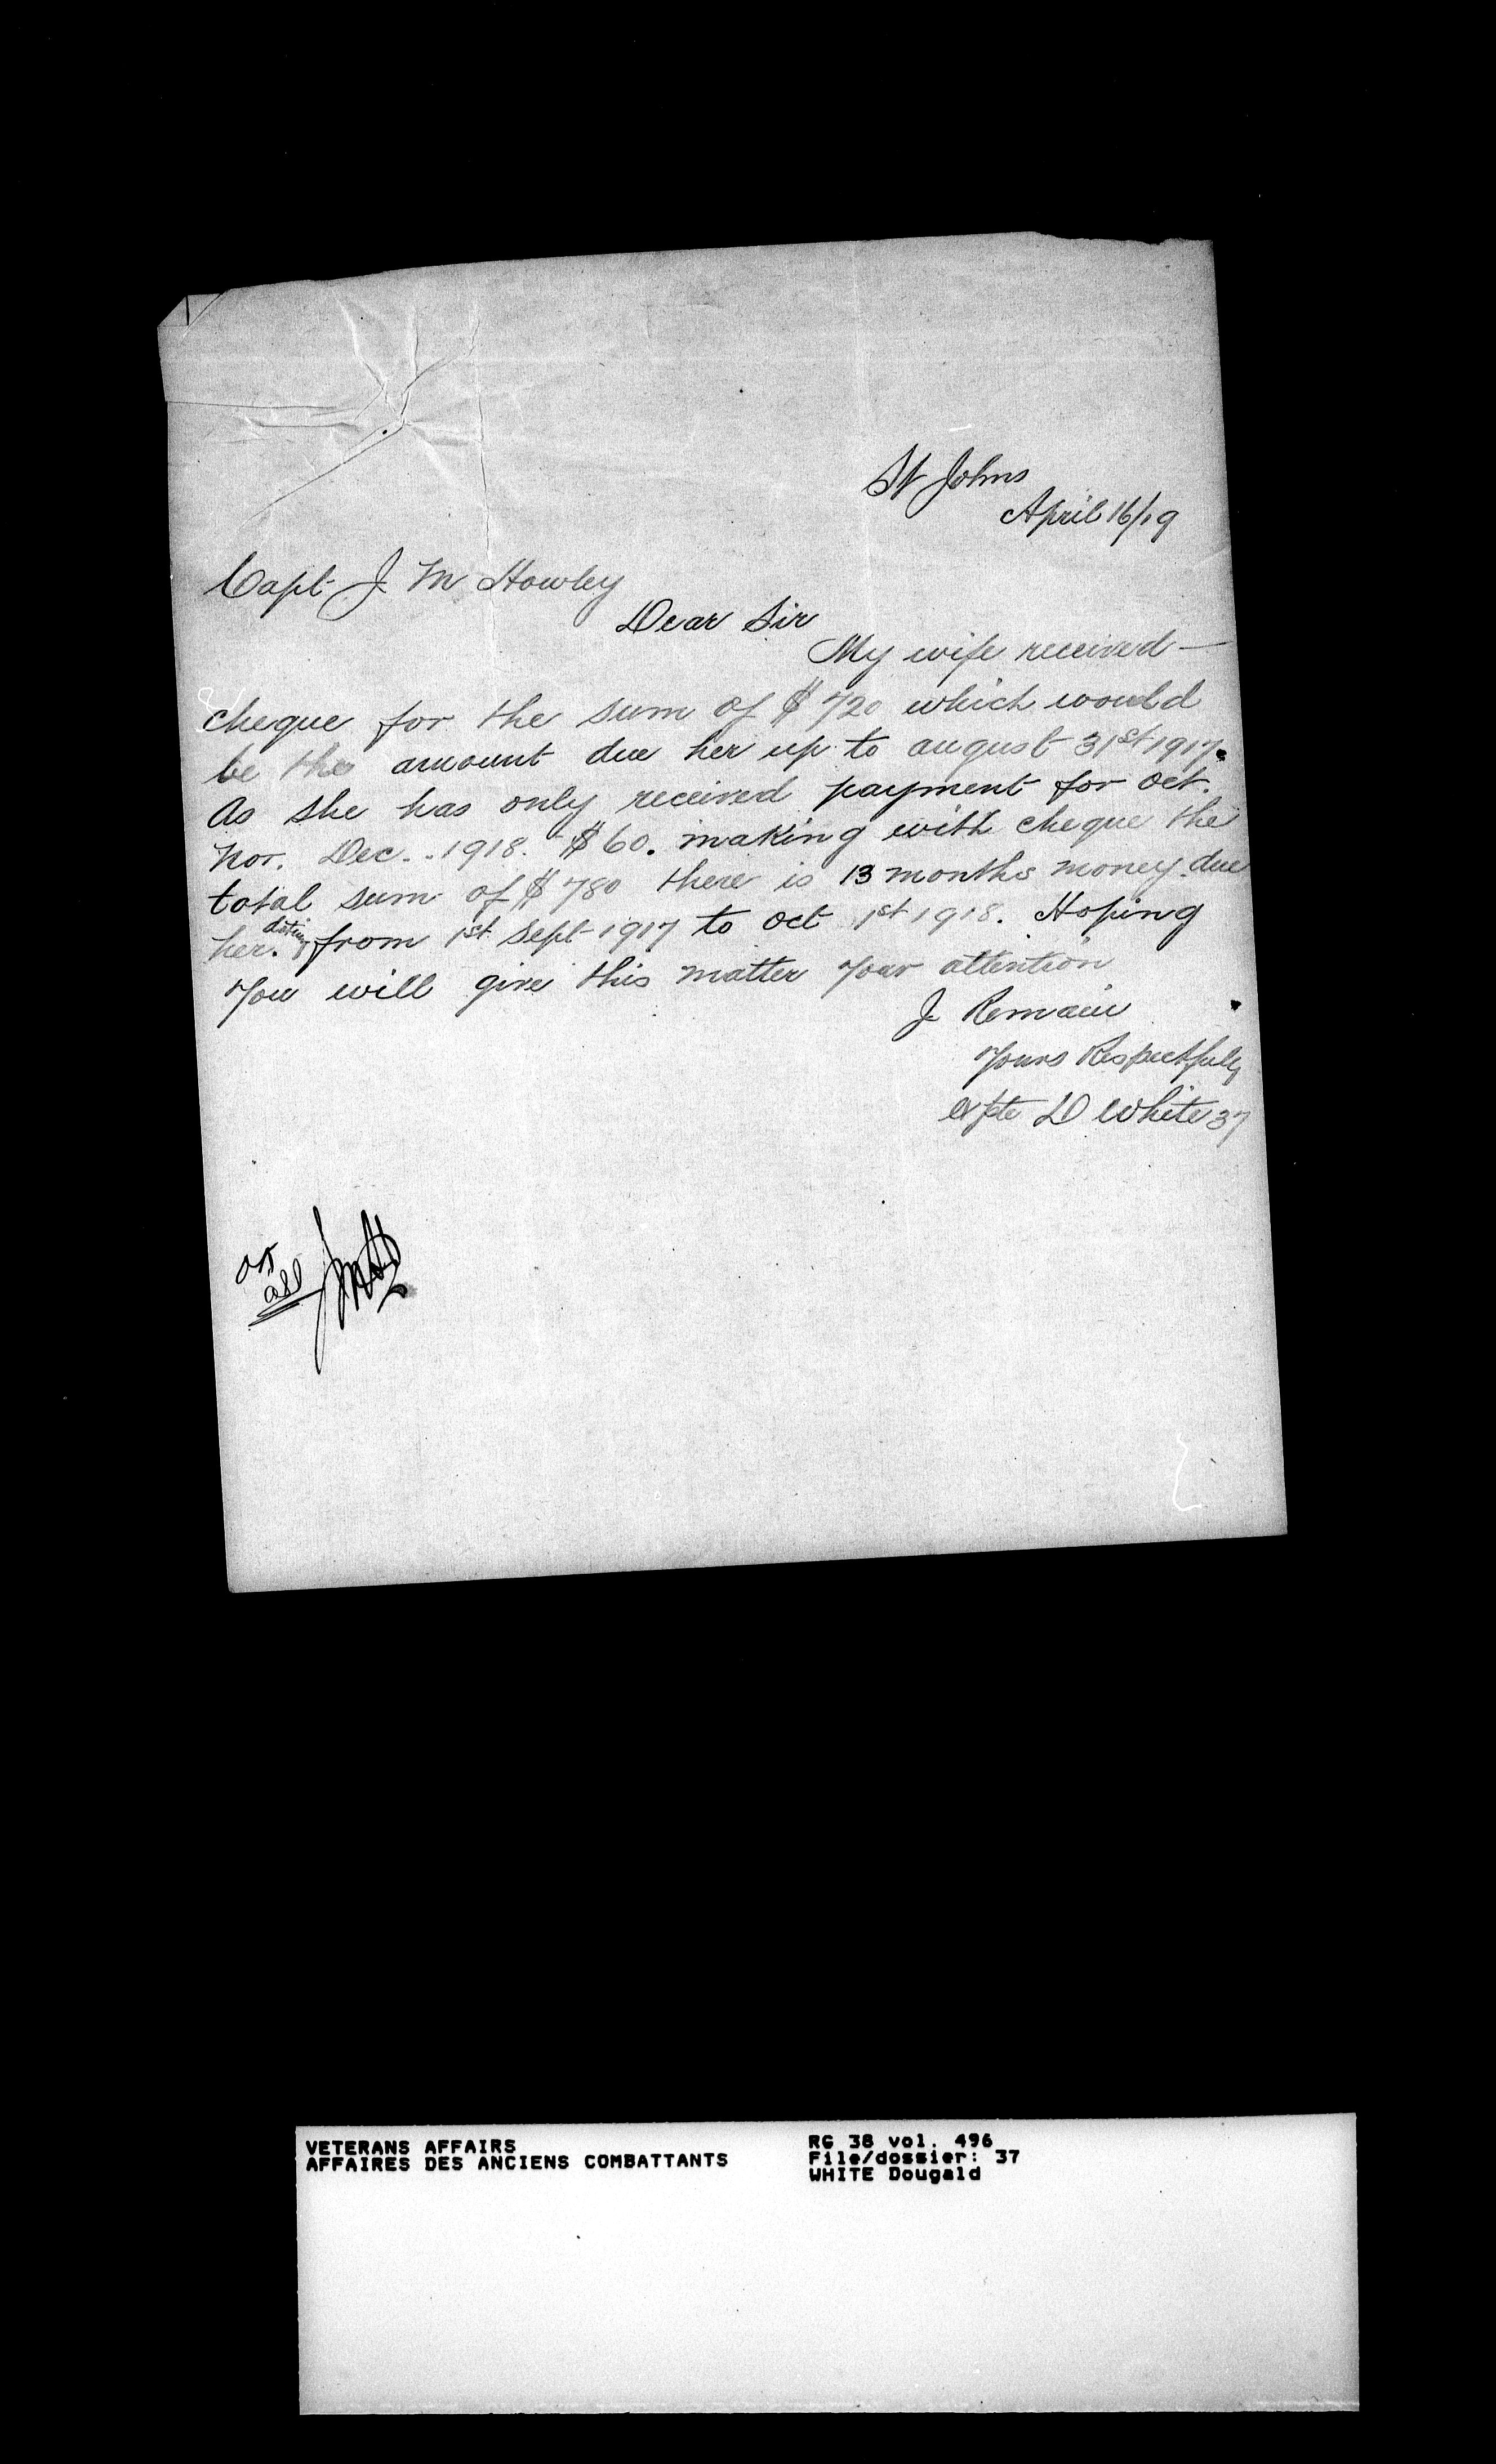 St Johns
April 16/19
Capt J M Howley
Dear Sir
My wife received —
cheque for the sum of $720 which would
be the amount due her up to august 31st 1917.
As she has only received payment for oct.
Nov. Dec. 1918. $60. making with cheque the
total sum of $780 there is 13 months money due
her. dating from 1st Sept 1917 to Oct 1st 1918. Hoping
you will give this matter your attention
I Remain
Yours Respectfully
ex pte D White 37
JMH
VETERANS AFFAIRS
AFFAIRES DES ANCIENS COMBATTANTS
RG 38 vol. 496
File/dossier: 37
WHITE Dougald